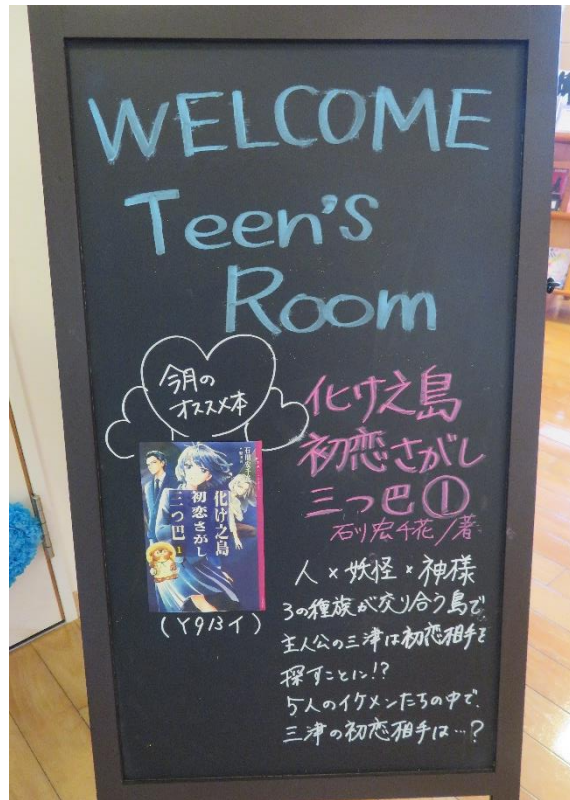 WELCOME
Teen's
Room
今月の
オススメ本
化け之島
初恋さがし
三つ巴①
石川宏千花/著
化け之島
初恋さがし
三つ巴
1
(Y913イ)
人×妖怪×神様
3の種族が交り合う島で
主人公の三津は初恋相手を
探すことに!?
5人のイケメンたちの中で、
三津の初恋相手は…?